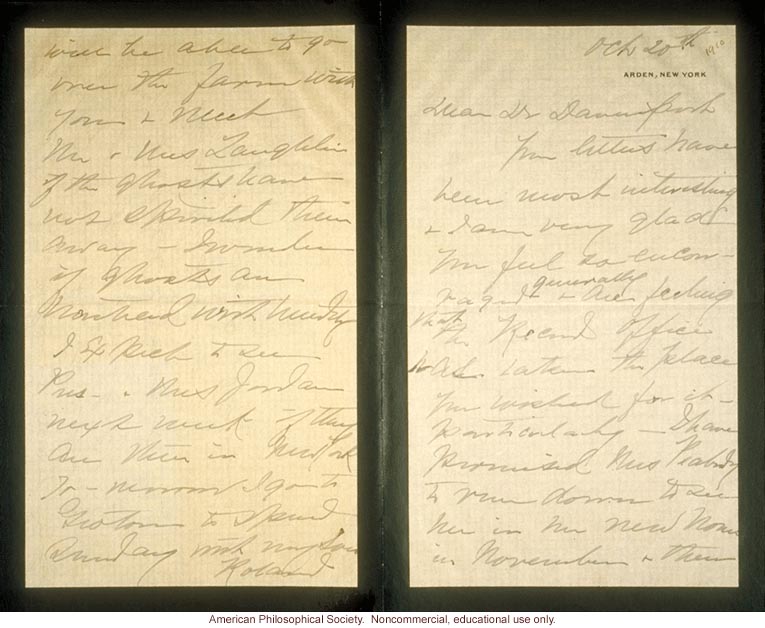 Oct 20th
1910
ARDEN, NEW YORK
Dear Dr Davenport
Your letters have
been most interesting
& I am very glad
you feel so encou-
raged generally & are feeling
that
the Record Office
has taken the place
you wished for it -
particularly — I have
promised Mrs Peabody
to run down to see
her in her new home
in November & then
will be able to go
over the farm with
you & meet
Mr & Mrs Laughlin
if the ghosts have
not spirited them
away — I wonder
if ghosts are
with heredity
I expect to see
Pres. & Mrs Jordan
next week if they
are then in New York
To-morrow I go to
Groton to spend
Sunday with my son
Roland
American Philosophical Society. Noncommercial, educational use only.